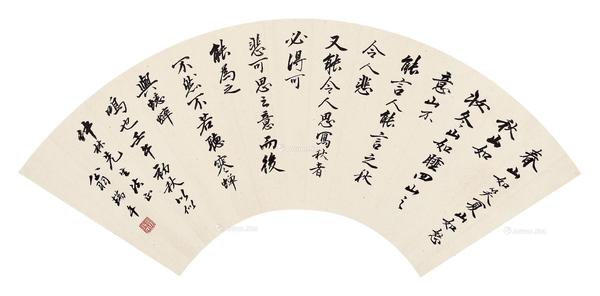 春山如笑夏山如怒
秋山如
妝冬山如睡四山之
意山不
能言人能言之秋
令人悲
又能令人思寫秋者
必得可
悲可思之意而後
能為之
不然不若聽寒蟬
與蟋蟀
鳴也壬午初秋以似
林先生法正
翁瑞午